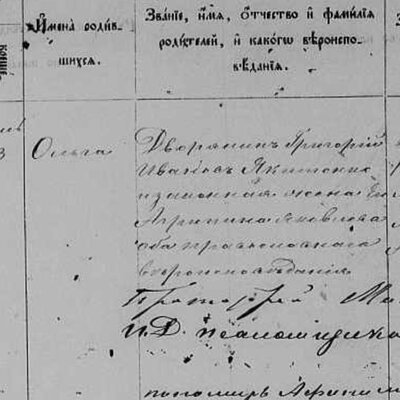 Имена родив-
шихся.
Званїе, имя, отчество и фамилїя
родителей, и какогѡ вѣроиспо-
вѣданїя.
Ольга
Дворянинъ Григорій
Ивановъ
и законная жена Его
Агрипина Яковлева
оба православнаго
вѣроисповѣданія
И. Д. псаломщика
пономарь